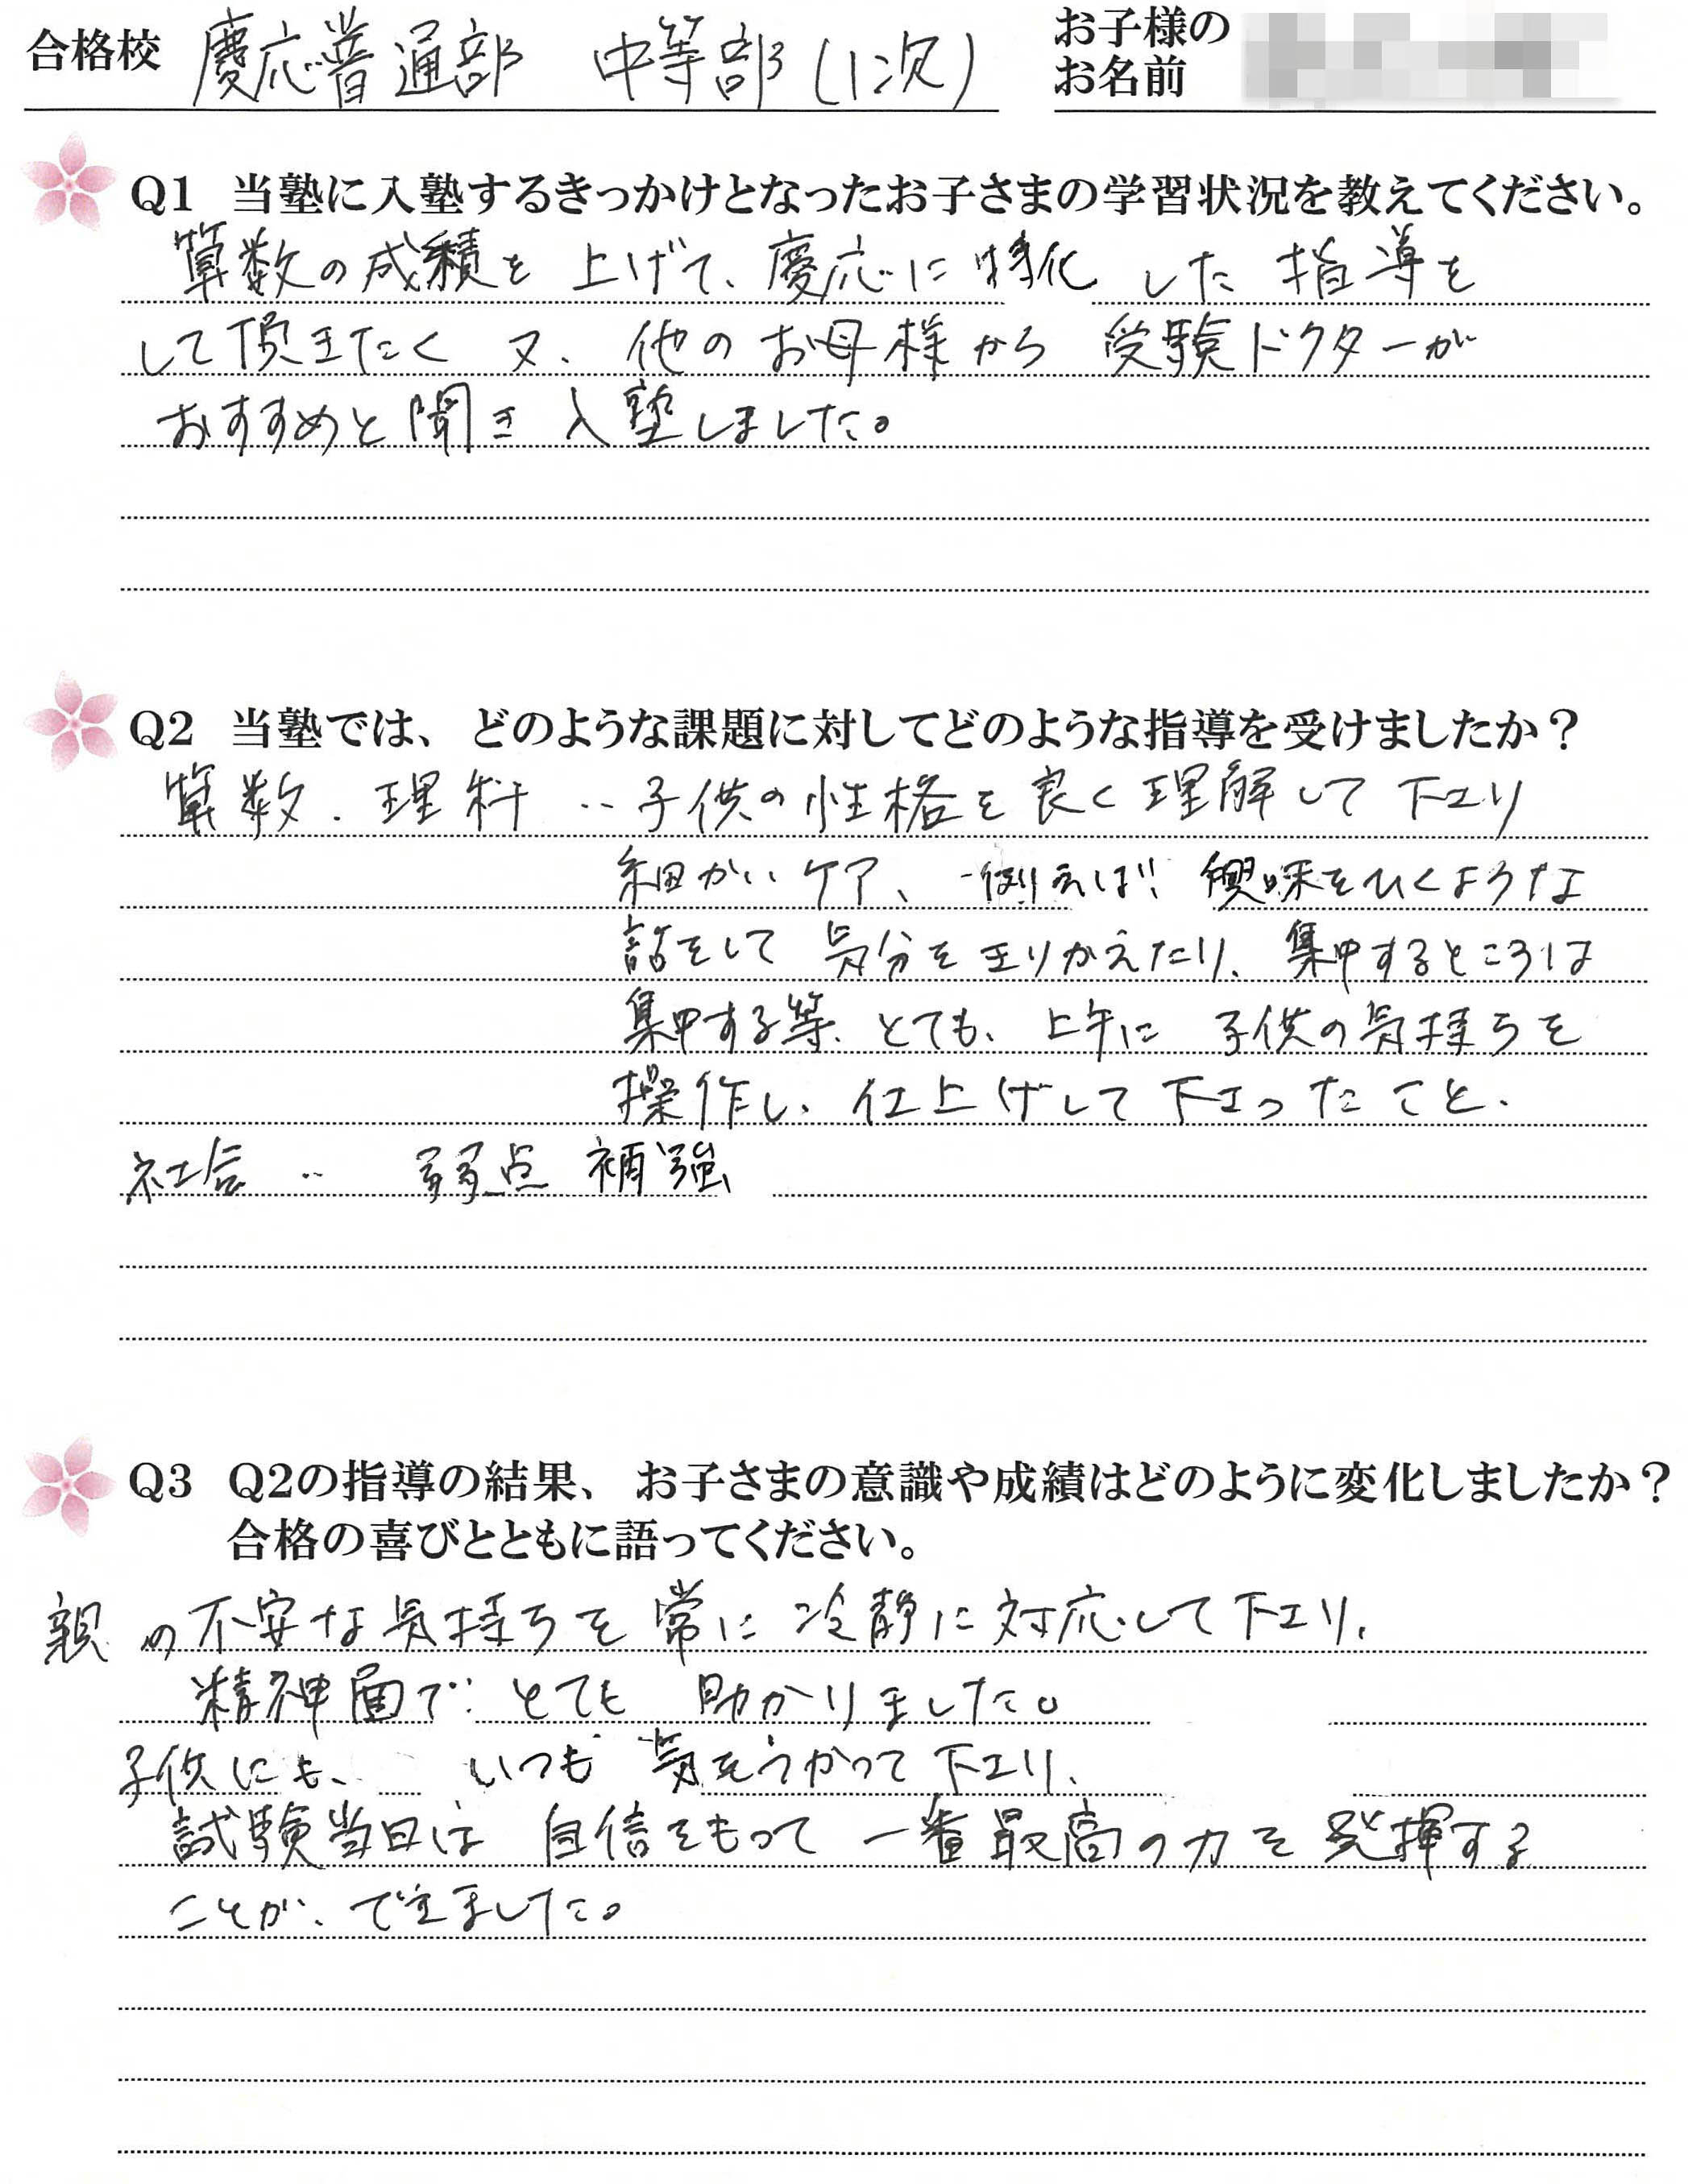 合格校 慶応普通部 中等部(1次)
お子様の
お名前
Q1 当塾に入塾するきっかけとなったお子さまの学習状況を教えてください。
算数の成績を上げて、慶応に特化した指導を
して頂きたく又、他のお母様から受験ドクターが
おすすめと聞き入塾しました。
Q2 当塾では、どのような課題に対してどのような指導を受けましたか？
算数.理科‥子供の性格を良く理解して下さり
細かいケア、例えば、興味をひくような
話をして気分を切りかえたり、集中するところは
集中する等、とても、上手に子供の気持ちを
操作し、仕上げして下さったこと.
社会‥弱点補強
Q3 Q2の指導の結果、お子さまの意識や成績はどのように変化しましたか？
合格の喜びとともに語ってください。
親の不安な気持ちを常に冷静に対応して下さり、
精神面でとても助かりました。
子供にも、いつも気をつかって下さり、
試験当日は自信をもって一番最高の力を発揮する
ことが、できました。